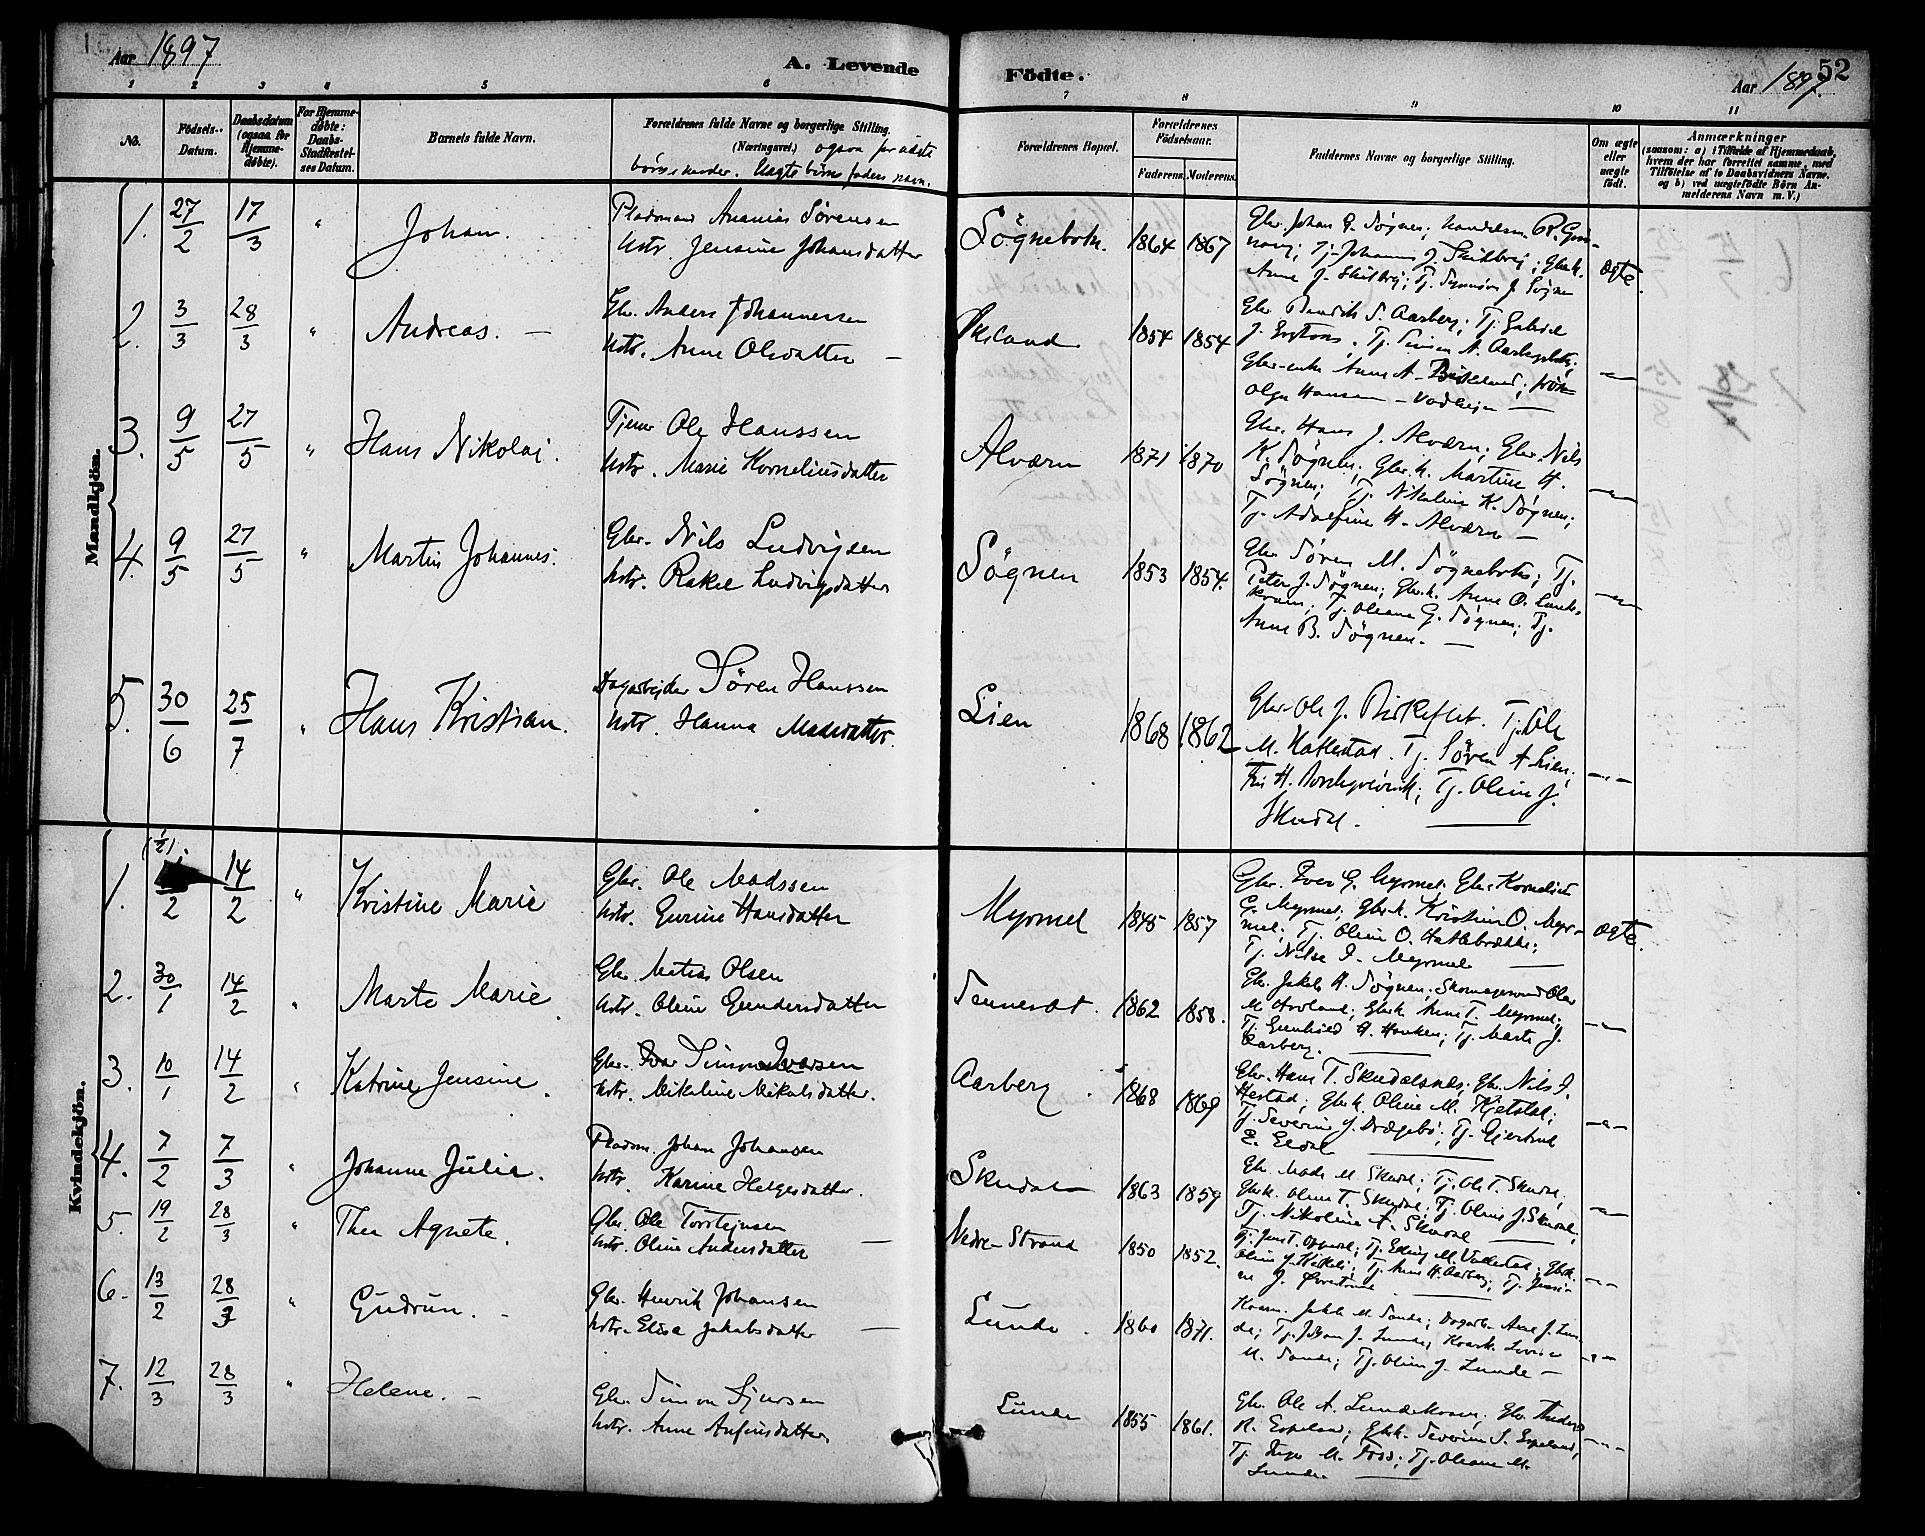 Aar 1897
A. Levende
Födte.
Aar 1897.
52
1 2 3 4 5 6 7 8 9 10 11
No.
Födsels-Datum.
Daabsdatum (ogsaa for Hjemme-döbte).
For Hjemme-döbte: Daabs-Stadfæstel-ses Datum.
Barnets fulde Navn.
Forældrenes fulde Navne og borgerlige Stilling.
(Næringsvei.) ogsaa for ægte
börns moder. Uægte börns faders navn.
Forældrenes Bopæl.
Forældrenes Födselsaar.
Faderens. Moderens.
Faddernes Navne og borgerlige Stilling.
Om ægte eller uægte födt.
Anmærkninger
(saasom: a) i Tilfælde af Hjemmedaab,
hvem der har forrettet samme, med
Tilföielse af to Daabsvidners Navne.
og b) ved uægtefödte Börn An-
melderens Navn m. V.)
Mandkjön.
1. 27/2 17/3 " Johan. Pladsmand Ananias Sørensen
Hstr. Jensine Johansdatter
Sögnebotn. 1864 1867
Gbr. Johan G. Søgnen;
Anne J. Skilbrej; Tj. Synnøve J. Søgnen
ægte.
2. 3/3 28/3 " Andreas. — Gbr. Anders Johannessen
Hstr. Anne Olsdatter —
1854 1854
Gbr. Bendik S. Aarberg; Tj. Gabriel
Gbr-enke Anne A. Birkeland; frøken
Olga Hansen — Vadheim —
—"—
3. 9/5 27/5 " Hans Nikolai. Tjener Ole Hanssen
Hstr. Marie Korneliusdatter
Alværn 1871 1870
Gbr. Hans J. Alværn; Gbr. Nils
K. Søgnen; Gbr.k. Martine H.
Søgnen; Tj. Nikoline K. Søgnen;
Tj. Adolfine H. Alværn —
—"—
4. 9/5 27/5 " Martin Johannes. Gbr. Nils Ludvigsen
Hstr. Rakel Ludvigsdatter
Sögnen 1853 1854.
Gbr. Søren M. Søgnebotn; Tj.
Peter J. Søgnen; Gbr.k. Anne O. Lunde-
kvam; Tj. Oleane G. Søgnen; Tj.
Anne B. Søgnen. —
—"—
5. 30/6 25/7 " Hans Kristian. Dagarbejder Sören Hanssen
Hstr. Hanna Madsdatter.
Lien 1868 1862
Gbr. Ole J. Birkeflet. Tj. Ole
M. Hatlestad. Tj. Sören A. Lien;
Tj. Oline J.
Skudal.
—"—
Kvindekjön.
1. (1/2) 14/2 " Kristine Marie Gbr. Ole Madssen
Hstr. Gurine Hansdatter
Myrmel 1845 1857
Gbr. Iver G. Myrmel; Gbr. Kornelius
G. Myrmel; Gbr.k. Kristine O. Myr-
mel; Tj. Oline O. Hatlebrække;
Tj. Nilse I. Myrmel —
ægte.
2. 30/1 14/2 " Marte Marie. Gbr. Matias Olsen
Hstr. Oline Gundersdatter
1862 1858.
Gbr. Jakob A. Søgnen; Skomagersvend Olai
M. Hovland; Gbr.k. Anne T. Myrmel;
Tj. Gunhild A. Hauken; Tj. Marta J.
Aarberg. —
—"—
3. 10/1 14/2 " Katrine Jensine. Gbr. Simon Iversen
Hstr. Nikoline Nikolsdatter.
Aarberg 1868 1869
Gbr. Hans T. Skudalsnes; Gbr. Nils I.
Hestad; Gbr.k. Oline M. Kjelstad;
Tj. Severine J. Drægebø; Tj. Gjertrud
E. Eldal —
—"—
4. 7/2 7/3 " Johanne Julie. Pladsm. Johan Johansen
Hstr. Karine Helgesdatter.
Skudal 1863 1859
Gbr. Mads M. Skudal; Tj. Ole T. Skudal;
Gbr.k. Oline T. Skudal; Tj. Oline J. Skudal;
Tj. Nikoline A. Skudal —
—"—
5. 19/2 28/3 " Thea Agnete. Gbr. Ole Torstejnsen
Hstr. Oline Andersdatter —
Nedre-Strand 1850 1852.
Tj. Anne H. Aarberg;
—"—
6. 13/2 28/3 " Gudrun. — Gbr. Henrik Johansen
Hstr. Elisa Jakobsdatter —
Lunde. 1860 1871.
Tj. Johan J. Lunde;
M. Sande; Tj. Oline J. Lunde —
—"—
7. 12/3 28/3 " Helene. — Gbr. Simon Sjursen
Hstr. Anne Anfinsdatter
Lunde 1855 1861.
Gbr. Ole A. Lundekvam; Gbr. Anders
R. Espeland; Gbr.k. Severine S. Espeland;
Tj. Inga M. Foss; Tj. Oleane M.
Lunde. —
—"—